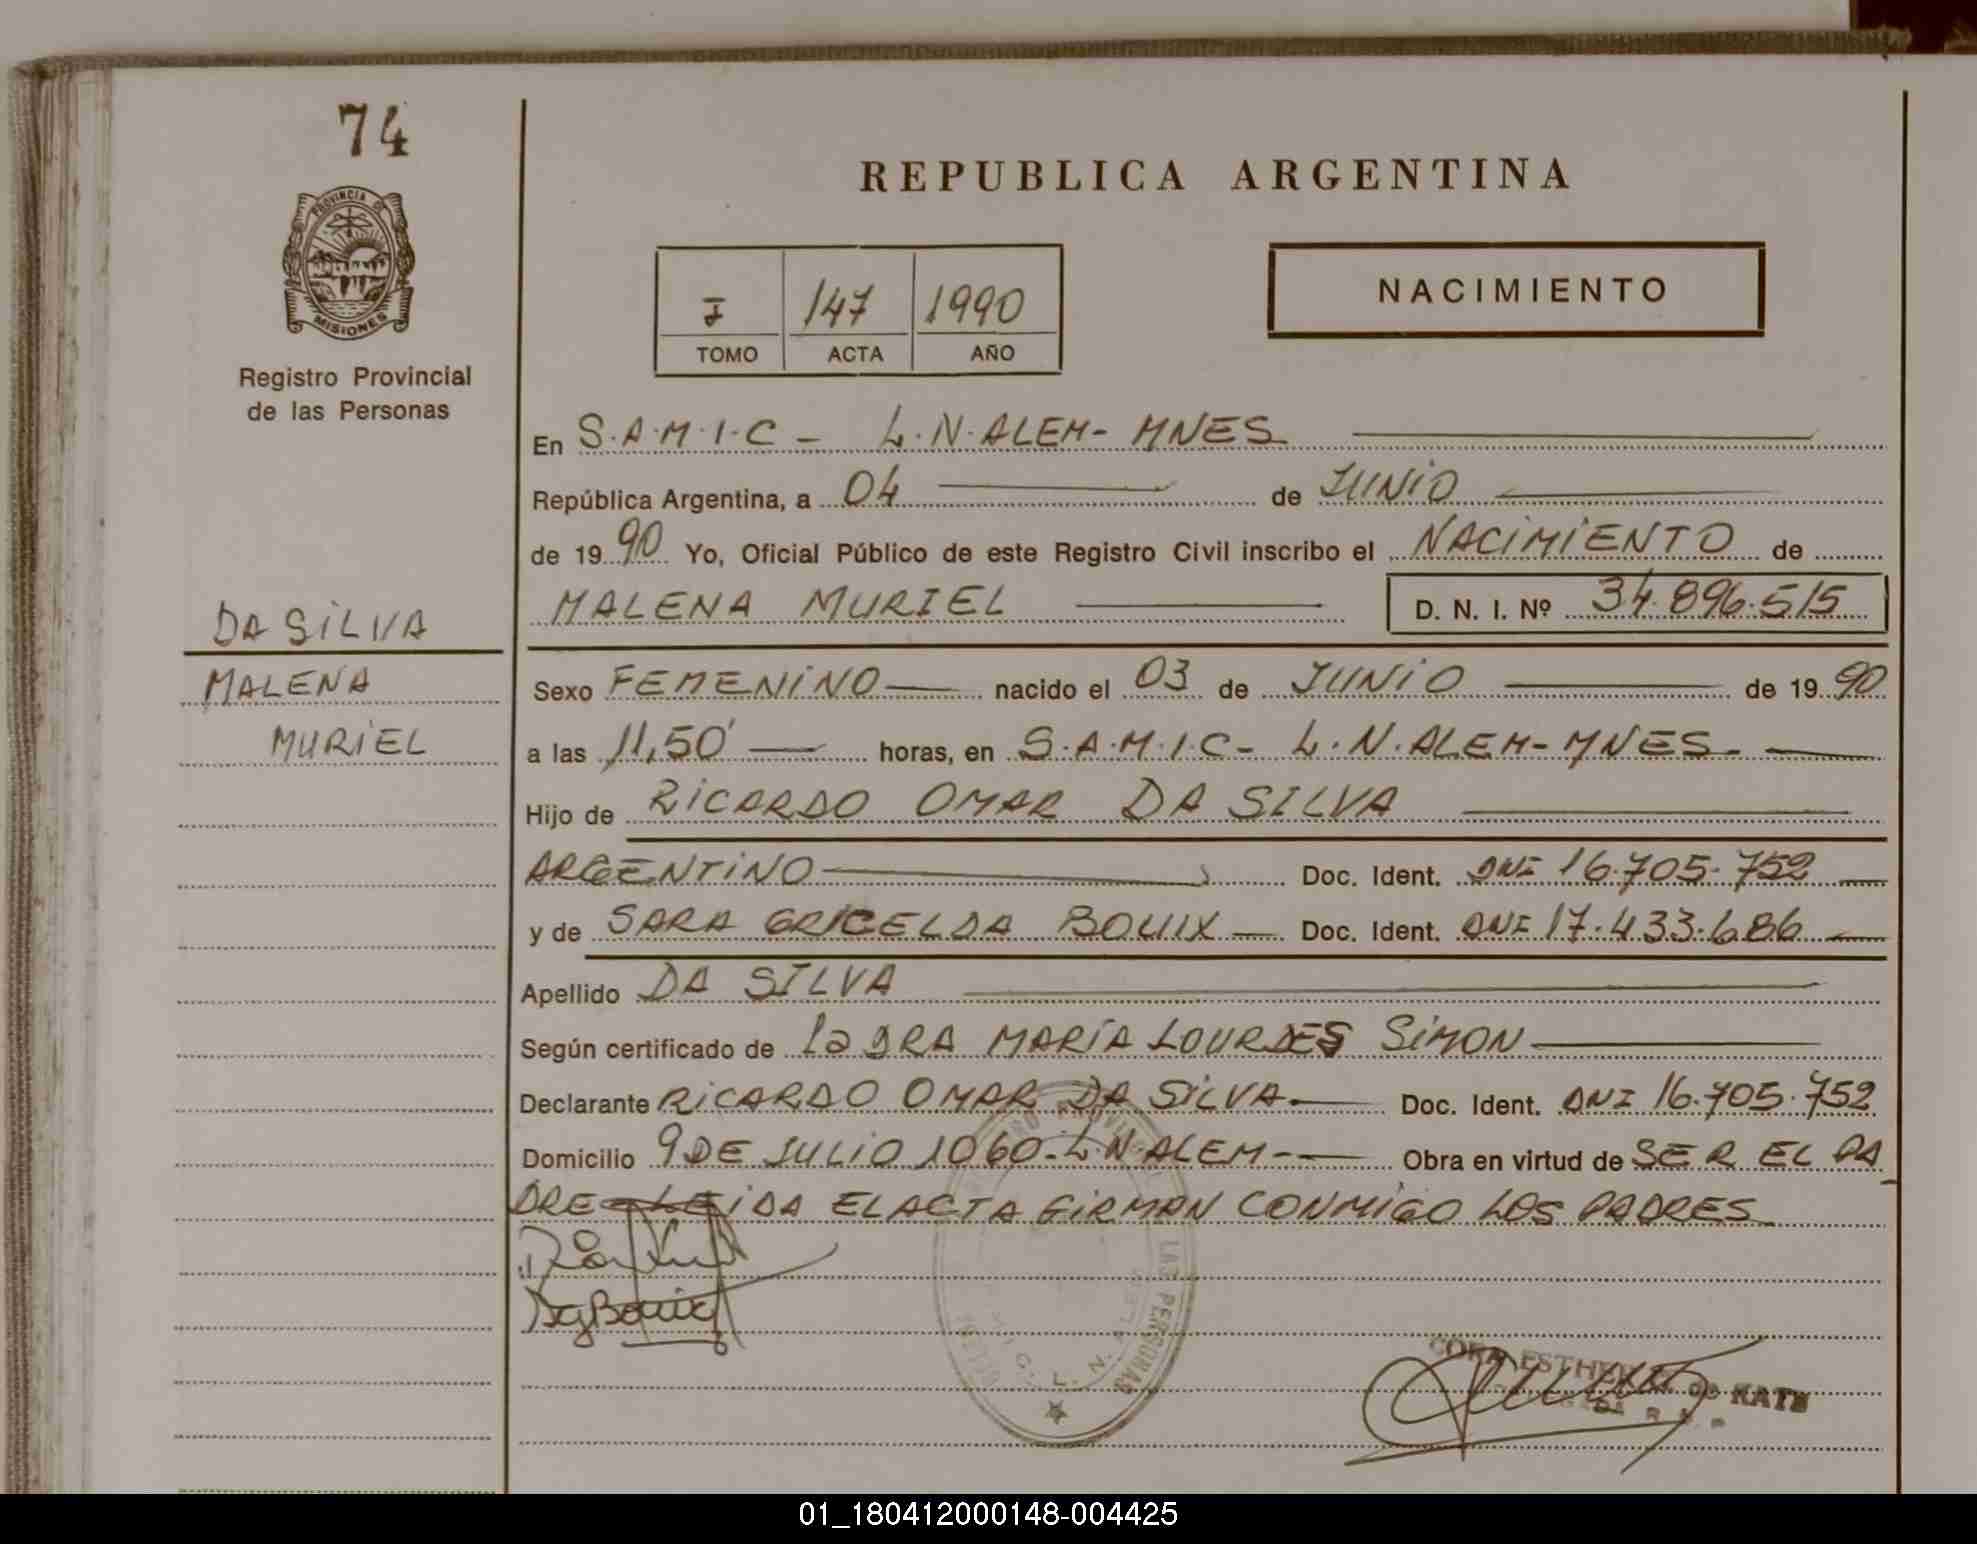 74
REPUBLICA ARGENTINA
PROVINCIA DE
MISIONES
Registro Provincial
de las Personas
I 147 1990
TOMO ACTA AÑO
NACIMIENTO
En S.A.M.I.C - L.N.ALEM- MNES
República Argentina, a 04 de JUNIO
de 1990 Yo, Oficial Público de este Registro Civil inscribo el NACIMIENTO de
MALENA MURIEL D. N. I. Nº 34.896.515
DA SILVA
MALENA
MURIEL
Sexo FEMENINO nacido el 03 de JUNIO de 1990
a las 11,50' horas, en S.A.M.I.C- L.N.ALEM-MNES-
Hijo de RICARDO OMAR DA SILVA
ARGENTINO Doc. Ident. DNI 16.705.752
y de SARA GRICELDA BOUIX Doc. Ident. DNI 17.433.686
Apellido DA SILVA
Según certificado de la DRA MARIA LOURDES SIMON
Declarante RICARDO OMAR DA SILVA Doc. Ident. DNI 16.705.752
Domicilio 9 DE JULIO 1060-L.N.ALEM- Obra en virtud de SER EL PA
DRE LEIDA EL ACTA FIRMAN CONMIGO LOS PADRES
LAS PERSONAS
L. N. ALEM
ESTHER
DE KATZ
01_180412000148-004425